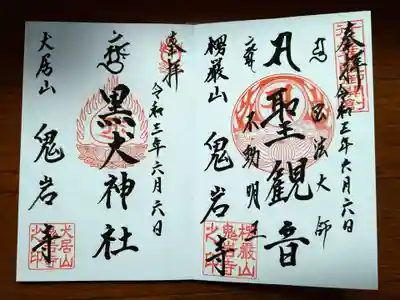 奉拝
令和三年六月六日
弘法大師
聖観音
不動明王
楞厳山
鬼岩寺
楞嚴山
鬼岩寺
之印
奉拝
令和三年六月六日
黒犬神社
犬居山
鬼岩寺
犬居山
鬼岩寺
之印